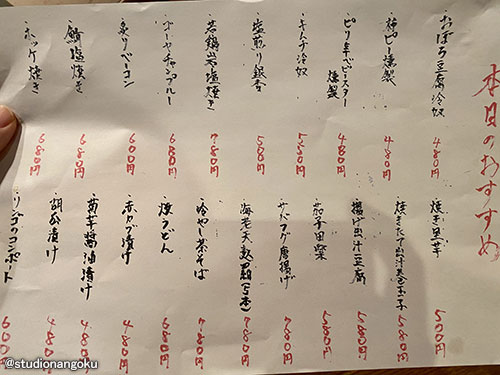 本日のおすすめ
おぼろ豆腐冷奴 480円
柿ピー燻製 480円
ピリ辛ベビースター燻製 480円
キムチ冷奴 580円
塩煎り銀杏 500円
若鶏岩塩焼き 780円
ゴーヤチャンプルー 680円
炙りベーコン 600円
鯖塩焼き 680円
ホッケ焼き 680円
焼き里芋 500円
焼きたて出汁巻玉子 580円
揚げ出汁豆腐 580円
茄子田楽 580円
サバフグ唐揚げ 780円
海老天 (5本) 780円
冷やし茶そば 780円
焼うどん 680円
赤カブ漬け 480円
菊芋醤油漬け 480円
胡瓜漬け 480円
リンゴのコンポート 600円
@studionangoku